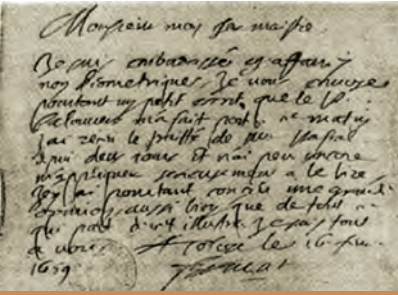 Monsieur mon cher maistre
Je suis embarassé d'affaires
non Geometriques. Je vous envoye
pourtant un petit escrit que le P.
m'a fait ce matin
J'ai receu le traitté de Mr Pascal
depuis deux jours Et n'ai peu encore
m'appliquer serieusement a le lire
J'en ai pourtant conceu une grande
opinion, aussi bien que de tout ce
qui part d'illustre. Je suis tout
a vous A le 16
1659 Fermat